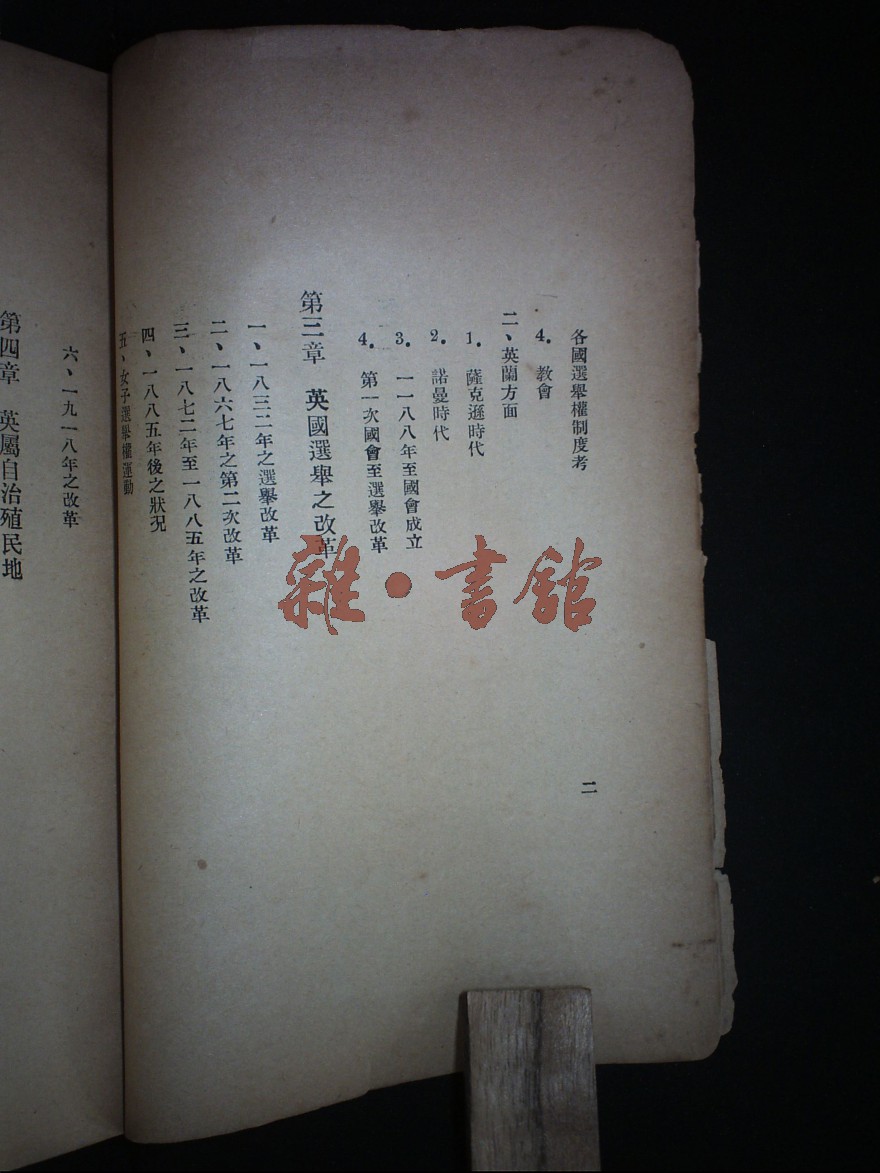 各國選舉權制度考
4. 教會
二、英蘭方面
1. 薩克遜時代
2. 諾曼時代
3. 一一八八年至國會成立
4. 第一次國會至選舉改革
第三章 英國選舉之改革
一、一八三二年之選舉改革
二、一八六七年之第二次改革
三、一八七二年至一八八五年之改革
四、一八八五年後之狀況
五、女子選舉權運動
二
六、一九一八年之改革
第四章 英屬自治殖民地
雜·書館